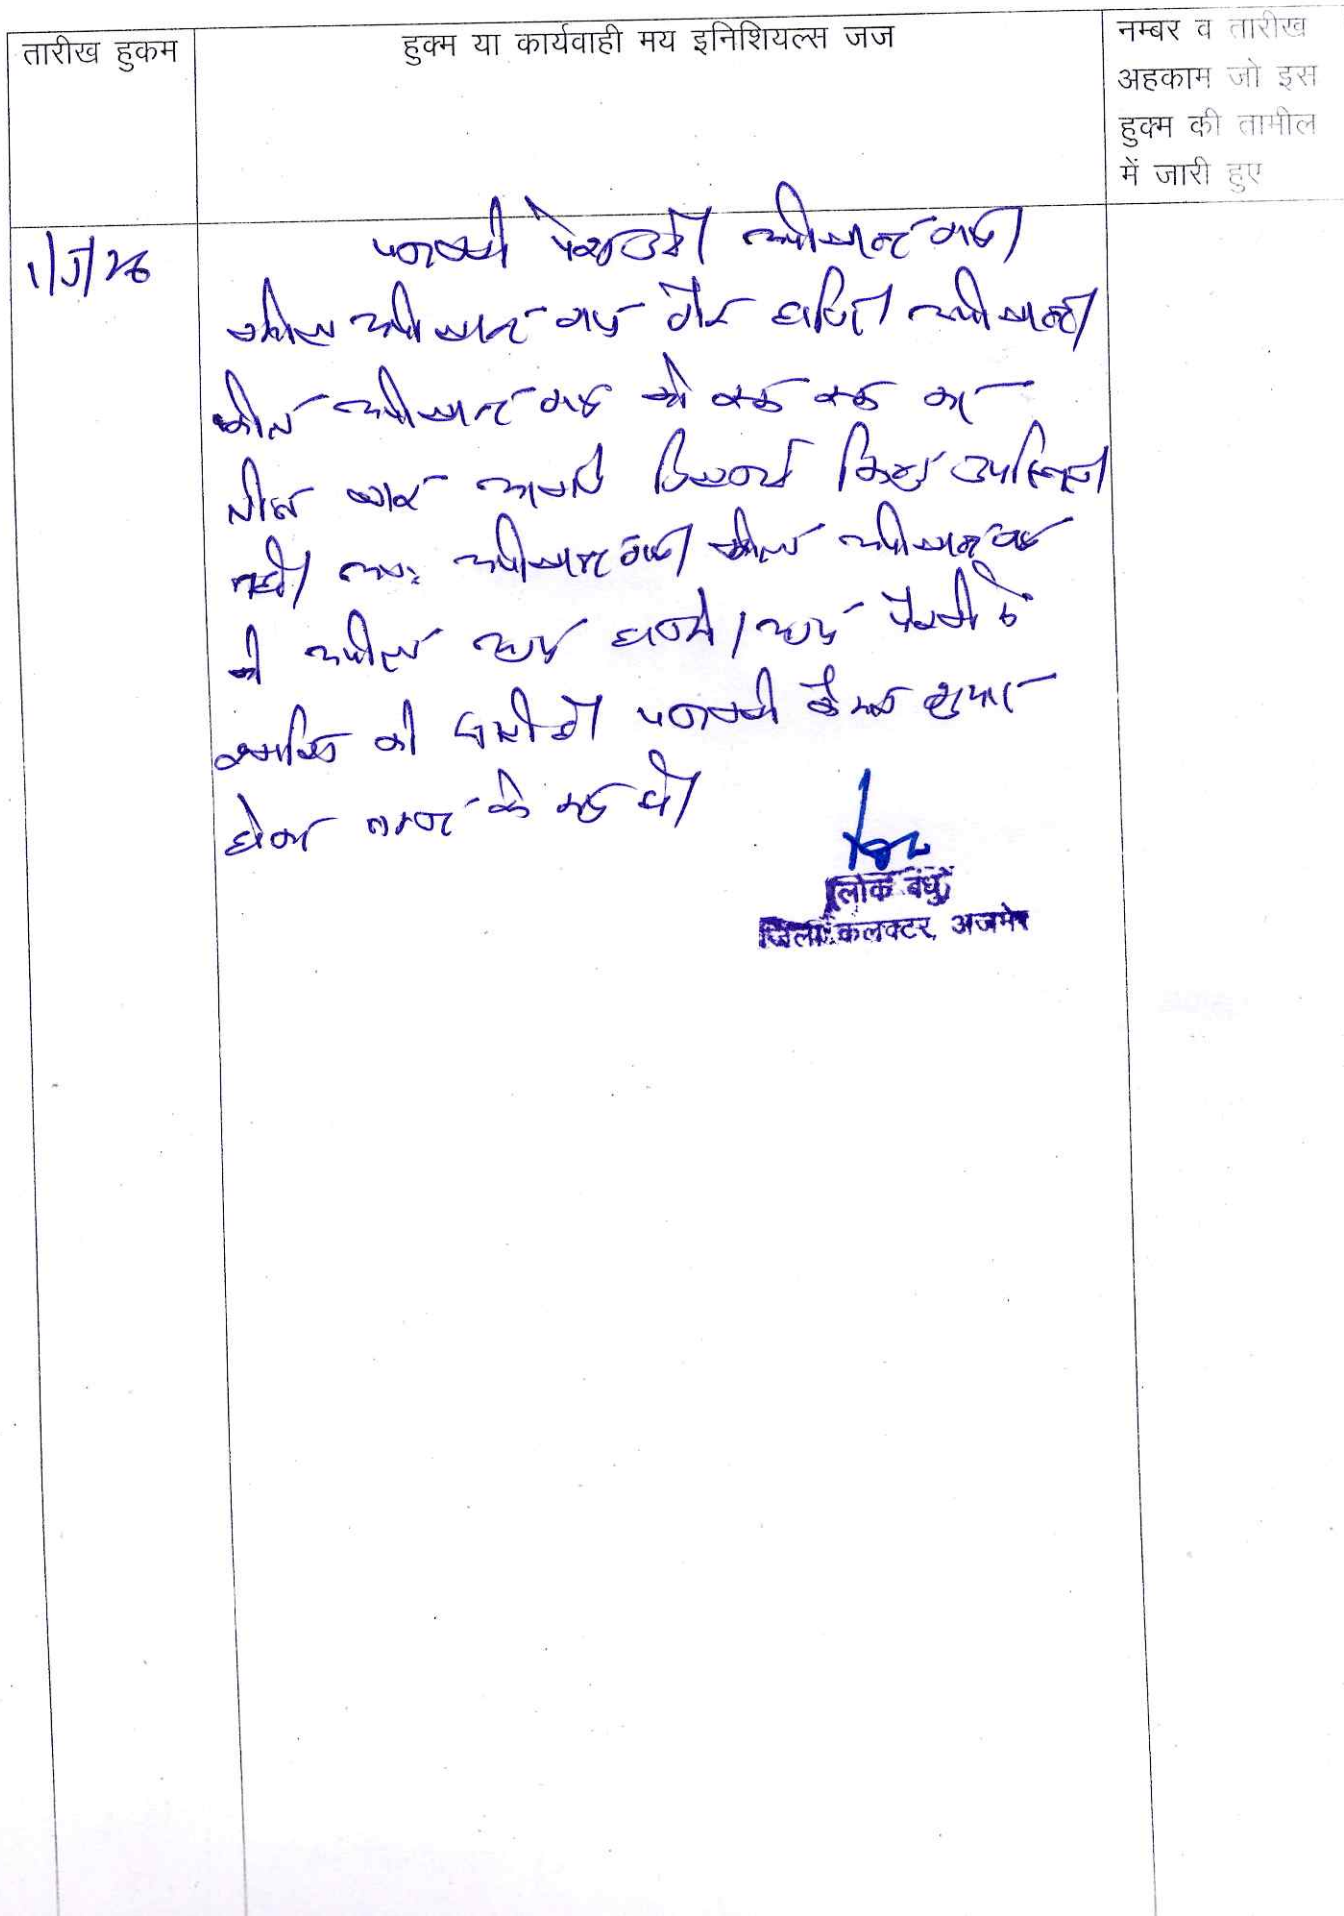 तारीख हुकम
हुक्म या कार्यवाही मय इनिशियल्स जज
नम्बर व तारीख
अहकाम जो इस
हुक्म की तामील
में जारी हुए
पत्रावली पेश हुई। अपीलान्ट गण
वकील अपीलान्ट गण गैर हाजिर। अपीलान्ट
वकील अपीलान्ट गण को रूक रूक कर
तीन बार आवाज दिलवायी किन्तु उपस्थित
नही। अतः अपीलान्ट गण। वकील अपीलान्ट गण
की अपील अदम हाजरी/अदम पैरवी में
खारिज की जाती है। पत्रावली फैसल शुमार
होकर नम्बर से कम हो।
लोक बंधु
जिला कलक्टर, अजमेर